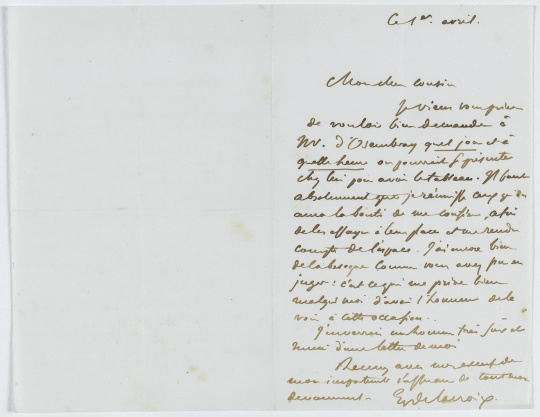 Ce 1er. avril.
Mon cher cousin
Je viens vous prier
de vouloir bien demander à
Mr. d'Osembray quel jour et à
quelle heure on pourrait se présenter
chez lui pour avoir le tableau. Il faut
absolument que je réunisse ceux qu'on
aura la bonté de me confier, afin
de les essayer à leur place et me rendre
compte de l'espace. J'ai encore bien
de la besogne comme vous avez pu en
juger : c'est ce qui me prive bien
malgré moi d'avoir l'honneur de le
voir à cette occasion.
J'enverrai un homme très sûr et
muni d'une lettre de moi
Recevez avec mes excuses de
mon importunité l'assurance de tout mon
dévouement.
Eug Delacroix.